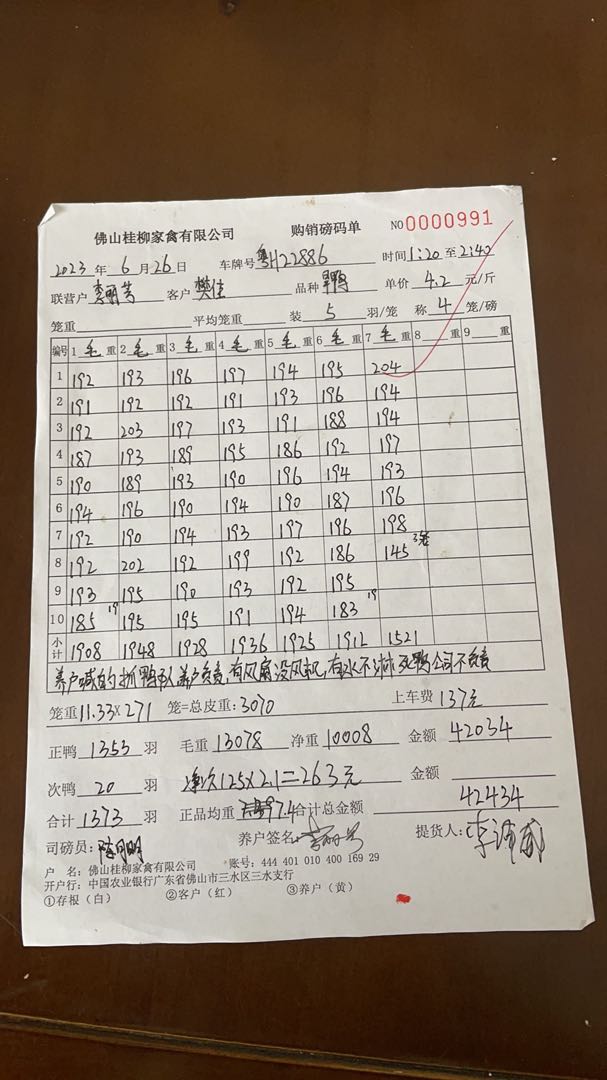 佛山桂柳家禽有限公司 购销磅码单 NO 0000991
2023 年 6 月 26 日 车牌号 粤H22886 时间 1:20 至 2:40
联营户 李丽芳 客户 樊佳 品种 旱鸭 单价 4.2 元/斤
笼重 平均笼重 装 5 羽/笼 称 4 笼/磅
编号 1 毛 重 2 毛 重 3 毛 重 4 毛 重 5 毛 重 6 毛 重 7 毛 重 8 重 9 重
1 192 193 196 197 194 195 204
2 191 192 192 191 193 196 194
3 192 203 197 193 191 188 194
4 187 193 189 195 186 192 197
5 190 189 193 190 196 194 193
6 194 196 190 194 190 187 196
7 192 190 194 193 197 196 198
8 192 202 192 199 192 186 145 3笼
9 193 195 190 193 192 195
10 185 19 195 195 191 194 183 19
小计 1908 1948 1928 1936 1925 1912 1521
养户喊的抓鸭队养户负责,有风扇没风机,有水不淋死鸭公司不负责
笼重 11.33×271 笼=总皮重: 3070 上车费 137元
正鸭 1353 羽 毛重 13078 净重 10008 金额 42034
次鸭 20 羽 125×2.1=263元 金额
合计 1373 羽 正品均重 7.4 合计总金额 42434
司磅员: 养户签名: 提货人:
户 名: 佛山桂柳家禽有限公司 账号: 444 401 010 400 169 29
开户行: 中国农业银行广东省佛山市三水区三水支行
①存根（白） ②客户（红） ③养户（黄）